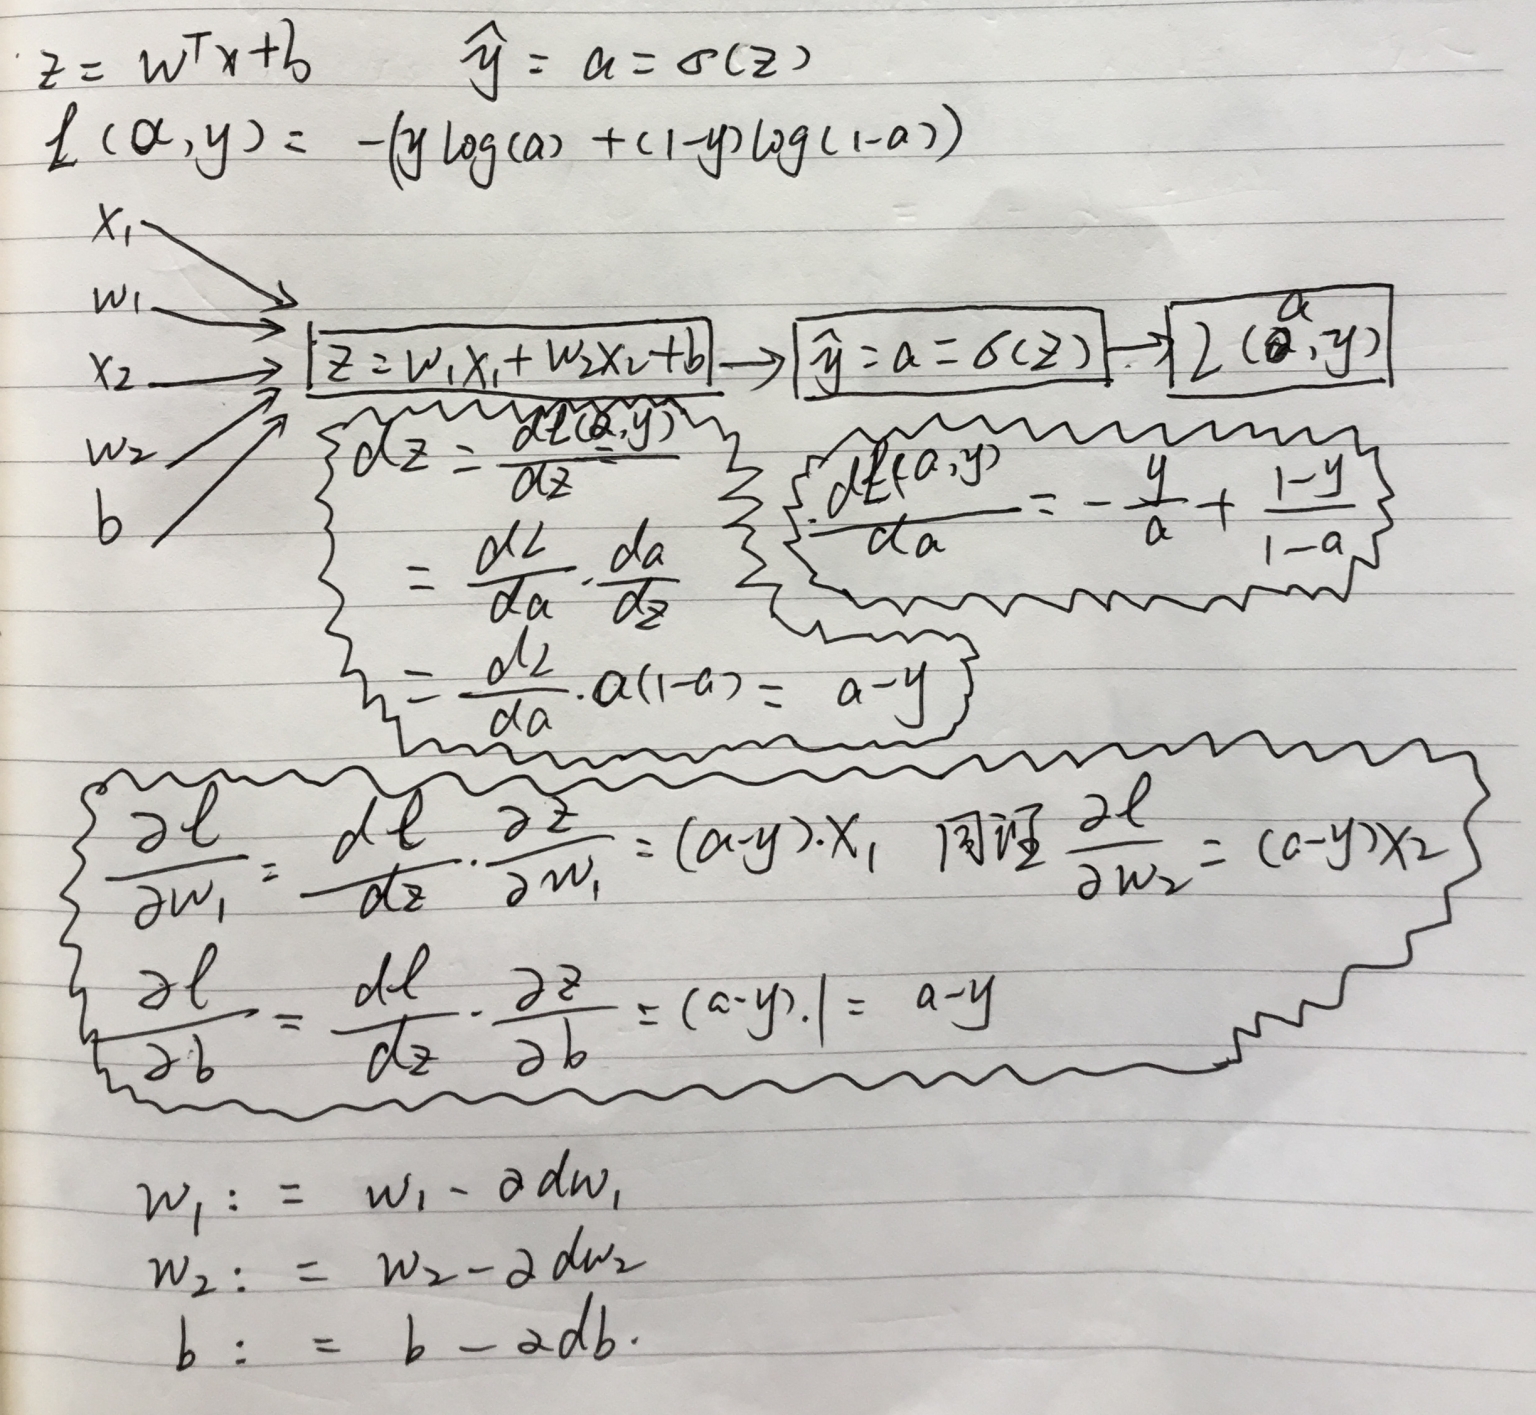 z = wᵀx+b   ŷ = a = σ(z)
ℓ(a,y) = -(y log(a) + (1-y)log(1-a))
x₁
w₁
x₂
w₂
b
z = w₁x₁ + w₂x₂ + b → ŷ = a = σ(z) → L(a,y)
dz = dℓ(a,y)/dz
dℓ(a,y)/da = - y/a + (1-y)/(1-a)
= dL/da · da/dz
= dL/da · a(1-a) = a-y
∂ℓ/∂w₁ = dℓ/dz · ∂z/∂w₁ = (a-y)·x₁ 同理 ∂ℓ/∂w₂ = (a-y)x₂
∂ℓ/∂b = dℓ/dz · ∂z/∂b = (a-y)·1 = a-y
w₁ := w₁ - αdw₁
w₂ := w₂ - αdw₂
b := b - αdb.